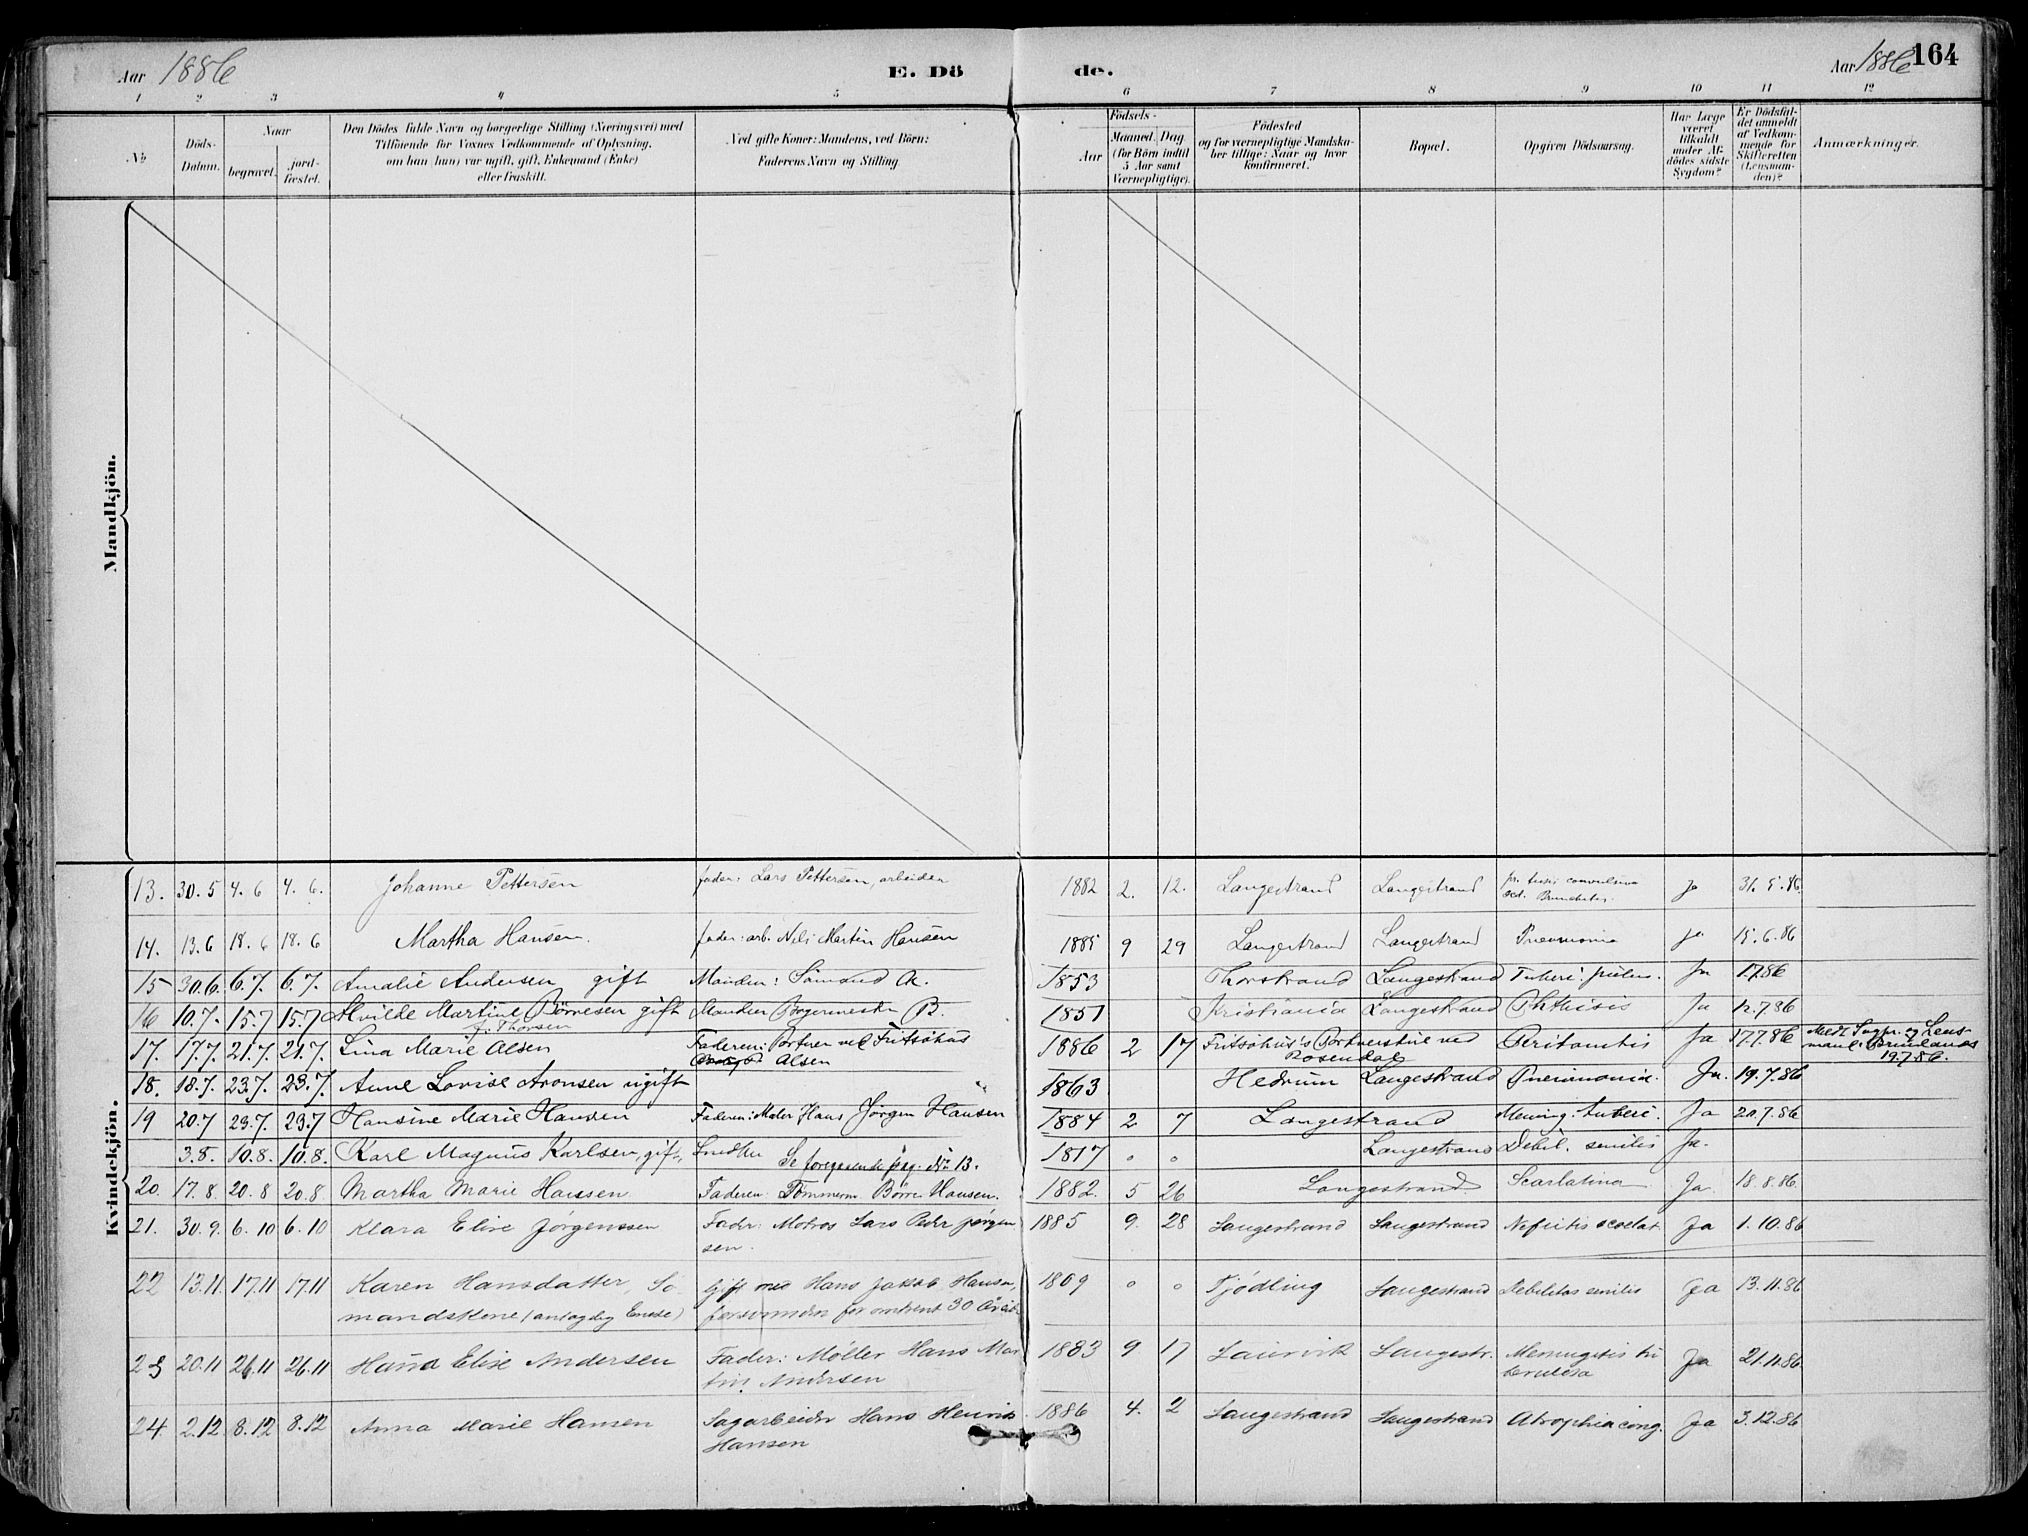 Aar 1886 E. Dö de. Aar 1886 164
1 2 3 4 5 6 7 8 9 10 11 12
No
Döds-Datum.
Naar
begravet. jord-fæstet.
Den Dödes fulde Navn og borgerlige Stilling (Næringsvei) med
Tilföiende for Voxnes Vedkommende af Oplysning,
om han (hun) var ugift, gift, Enkemand (Enke)
eller fraskilt.
Ved gifte Koner: Mandens, ved Börn:
Faderens Navn og Stilling.
Födsels-
Aar Maaned. Dag.
(for Börn indtil
5 Aar samt
Værnepligtige).
Födested
og for værnepligtige Mandska-
ber tillige: Naar og hvor
konfirmeret.
Bopæl.
Opgiven Dödsaarsag.
Har Læge
været
tilkaldt
under Af-
dödes sidste
Sygdom?
Er Dödsfal-
det anmeldt
af Vedkom-
mende for
Skifteretten
(Lensman-
den)?
Anmærkninger.
Mandkjön.
Kvindekjön.
13. 30.5 4.6 4.6. Johanne Pettersen fader: Lars Pettersen, arbeider 1882 2. 12. Langestrand Langestrand Ja 31.5.86.
14. 13.6 18.6 18.6 Martha Hansen. fader: arb. Nils Martin Hansen 1885 9 29 Langestrand Langestrand Pneumonia Ja 15.6.86
15 30.6. 6.7. 6.7. Amalie Andersen gift Manden: Sömand A. 1853 Thorstrand Langestrand Tuberc: pulm. Ja 1.7.86
16 10.7. 15.7 15.7 Martine Börresen gift Manden Borgermester B. 1851 Kristiania Langestrand Phthisis Ja 12.7.86
f. Thorsen
17. 17.7. 21.7. 21.7. Lina Marie Olsen Faderen: Portner ved Fritsöhus Olsen 1886 2 17 Fritsöhus's Portnerstue ved Rosendal Peritonitis Ja 17.7.86 Meldt Sogpr. og Lens-
mand 19.7.86.
18. 18.7. 23.7. 23.7. Anne Lovise Aronsen ugift 1863 Hedrum Langestrand Pneumonia. Ja. 19.7.86
19 20.7 23.7. 23.7 Hansine Marie Hansen Faderen: Maler Hans Jørgen Hansen 1884 2 7 Langestrand Mening: tuberc. Ja 20.7.86
3.8. 10.8. 10.8. Karl Magnus Karlsen, gift, Smed Se foregaaende pag. No 13. 1817 " " Langestrand Debil. senilis Ja.
20. 17.8. 20.8 20.8 Martha Marie Hansen Faderen: Tömmerm. Börre Hansen. 1882. 5 26 Langestrand Scarlatina Ja 18.8.86.
21. 30.9. 6.10 6.10 Klara Elise Jørgenssen Fader: Matros Lars Peder Jørgen-
sen. 1885 9. 28 Langestrand Langestrand Nefritis scarlat. Ja 1.10.86
22 13.11. 17.11 17.11 Karen Hansdatter, Sø-
mandskone (antagelig Enke) Gift med Hans Jakob Hansen,
forsvunden for omtrent 30 Aar 1809 " " Tjödling Langestrand Debilitas senilis Ja 13.11.86
23 20.11 26.11 26.11 Hanna Elise Andersen Fader: Møller Hans Mar-
tin Andersen 1883 9 17 Laurvik Langestr. Meningitis tu-
berculosa Ja 21.11.86
24 2.12 8.12 8.12 Anna Marie Hansen Sagarbeider Hans Henrik
Hansen 1886 4. 2 Langestrand Langestrand Atrophia cong. Ja 3.12.86